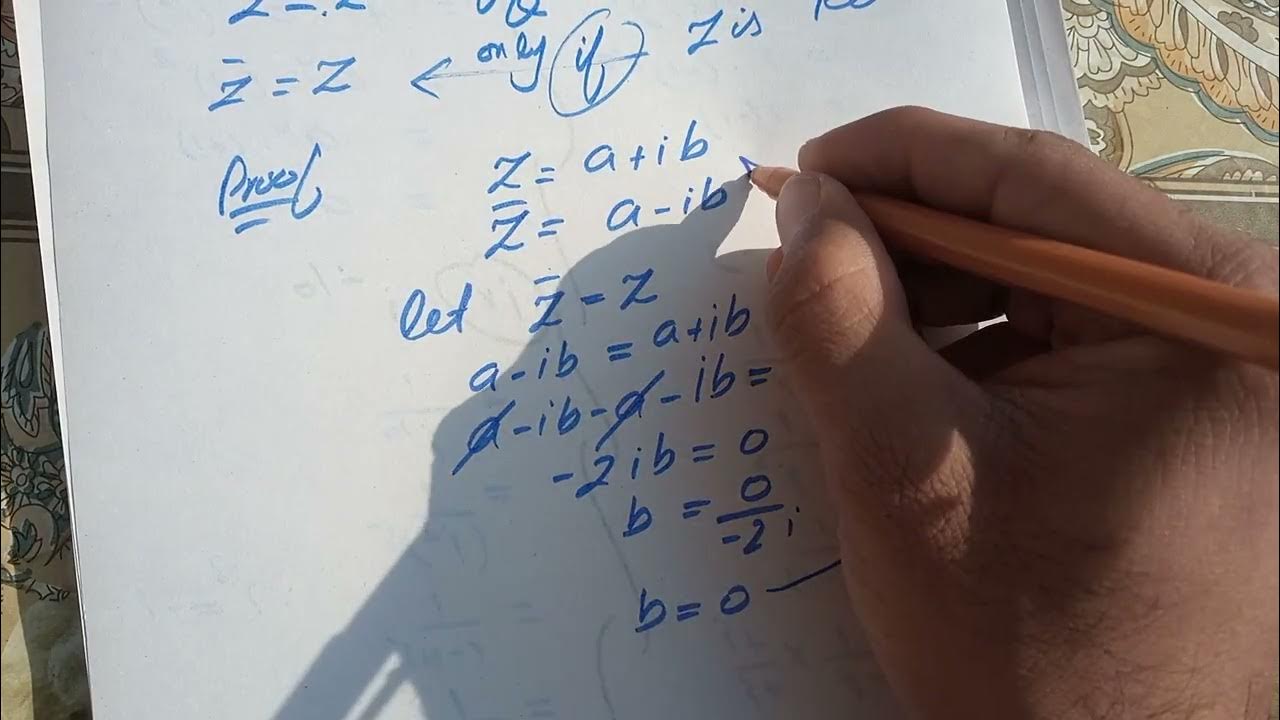 z̄ = z ← only if z is
Proof
z = a + ib
z̄ = a - ib
let z̄ = z
a - ib = a + ib
a - ib - a - ib =
-2ib = 0
b = 0/-2i
b = 0